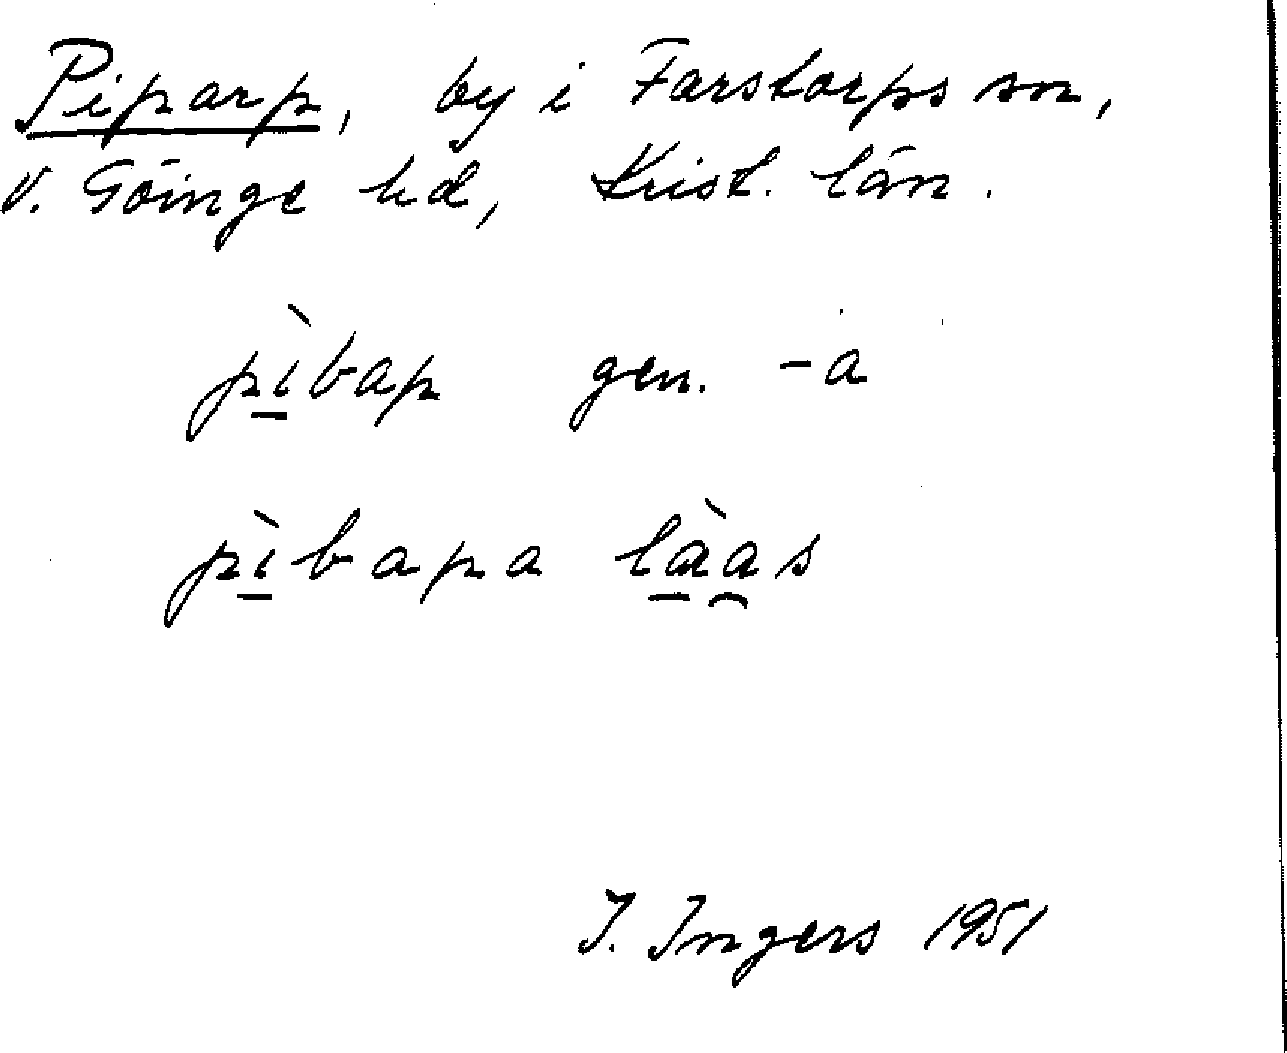 Piparp, by i Farstorps sn,
V. Göinge hd, Krist. län.
pìbap gen. -a
pìbapa làas
I. Ingers 1951